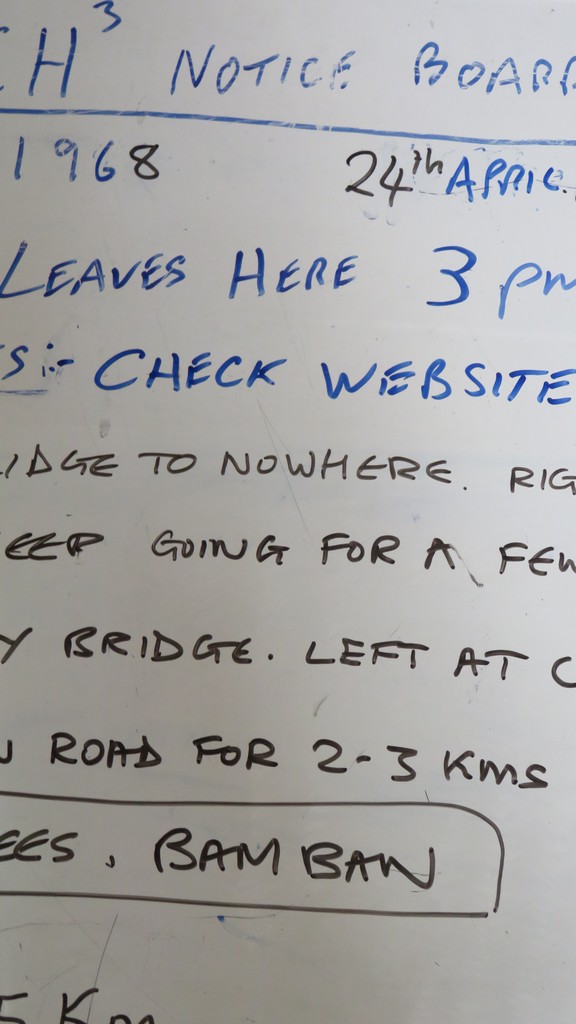 CH³ NOTICE BOARD
1968 24th APRIL
LEAVES HERE 3 pm
S:- CHECK WEBSITE
IDGE TO NOWHERE. RIG
EEP GOING FOR A FEW
Y BRIDGE. LEFT AT C
N ROAD FOR 2-3 KMS
EES, BAM BAN
5 Km